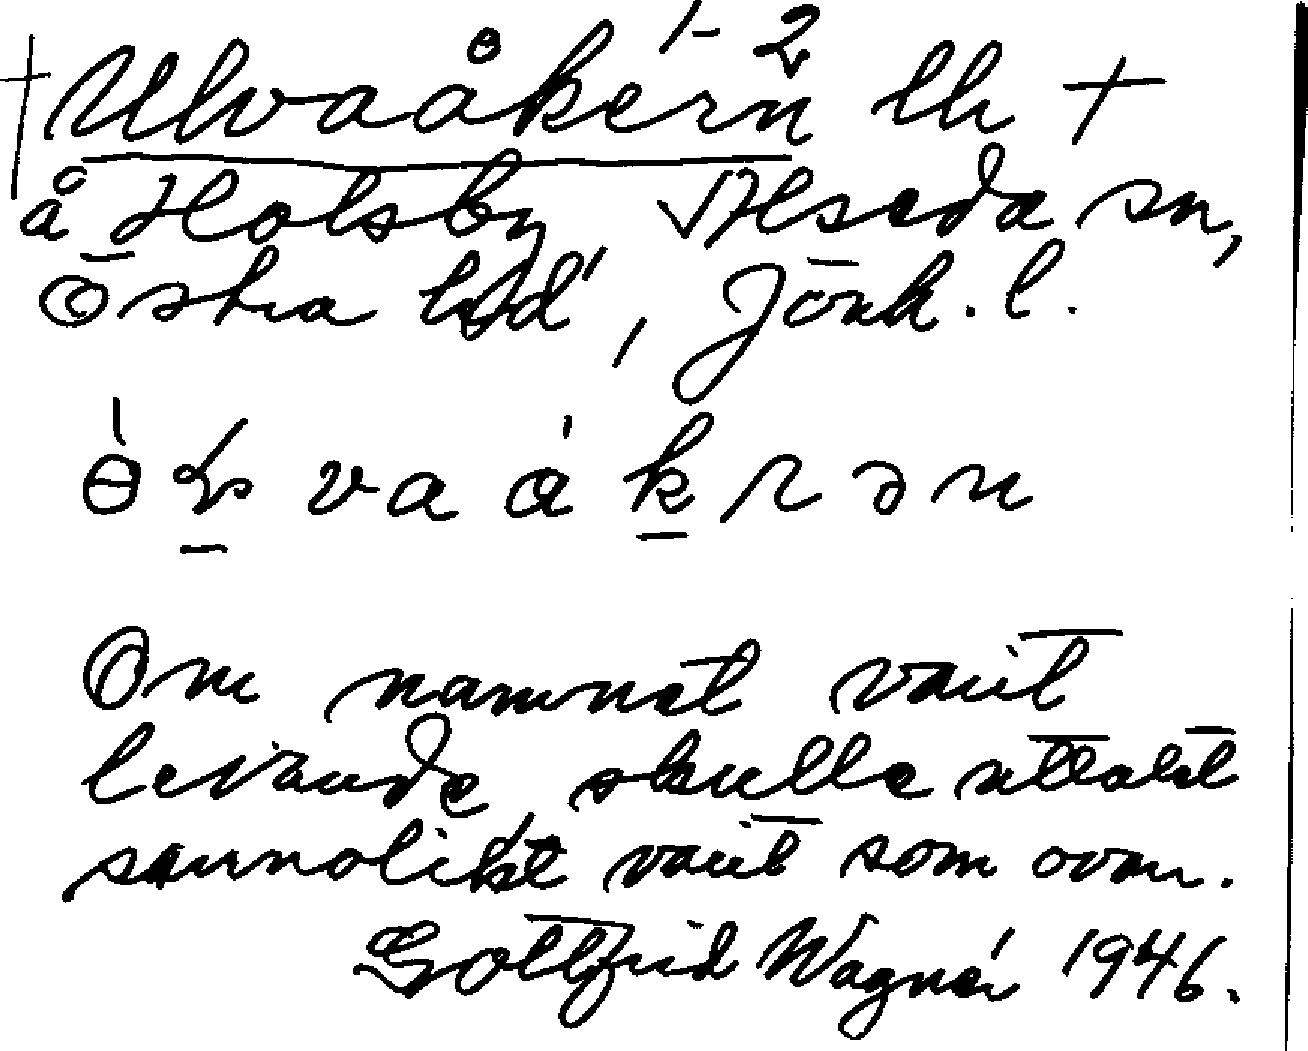 † Ulvaåkern lh †
1-2
å Holsby √ Alseda sn,
Östra hd, Jönk. l.
va å k r ə n
Om namnet varit
levande, skulle uttalet
sannolikt varit som ovan.
Gottfrid Wagnér 1946.